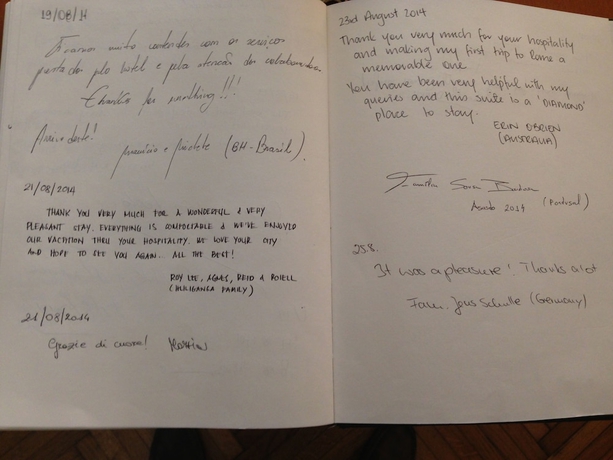 19/08/14
muito contentes com os serviços
prestados pelo hotel e pela atenção dos colaboradores
for everything!!!
Arrivederci!
(BH-Brasil).
21/08/2014
THANK YOU VERY MUCH FOR A WONDERFUL & VERY
PLEASANT STAY. EVERYTHING IS COMFORTABLE & WE'VE ENJOYED
OUR VACATION THRU YOUR HOSPITALITY. WE LOVE YOUR CITY
AND HOPE TO SEE YOU AGAIN.. ALL THE BEST!
ROY LEE, AGNES, REID &
(HULIGANGA FAMILY)
21/08/2014
Grazie di cuore!
23rd August 2014
Thank you very much for your hospitality
and making my first trip to Rome a
memorable one.
You have been very helpful with my
queries and this suite is a 'DIAMOND'
place to stay.
ERIN O'BRIEN
(AUSTRALIA)
Agosto 2014 (Portugal)
25.8.
It was a pleasure! Thanks a lot
Fam. Jens Schulle (Germany)